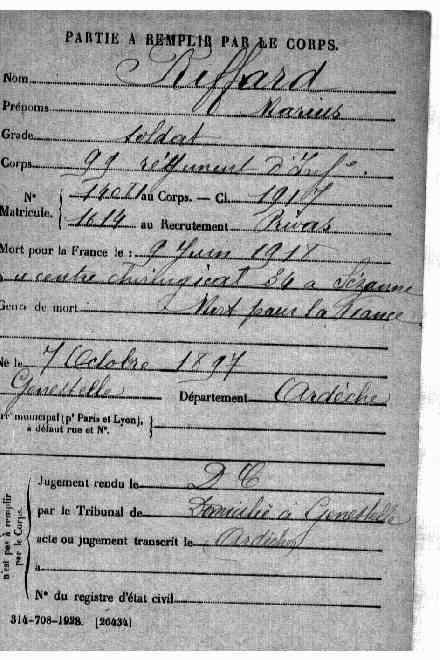 PARTIE A REMPLIR PAR LE CORPS.
Nom Riffard
Prénoms Marius
Grade soldat
Corps 99 régiment d'Infie.
N° Matricule. au Corps. — Cl. 1917
1614 au Recrutement Privas
Mort pour la France le : 9 Juin 1918
centre chirurgical 34 a Sézanne
Genre de mort Mort pour la France
Né le 7 Octobre 1897
Genestelle Département Ardèche
Arrt municipal (pr Paris et Lyon),
à défaut rue et N°.
Jugement rendu le D C
par le Tribunal de Domicilié à Genestelle
acte ou jugement transcrit le Ardèche
à
N° du registre d'état civil
n'est pas à remplir
par le Corps.
314-708-1928. [26434]